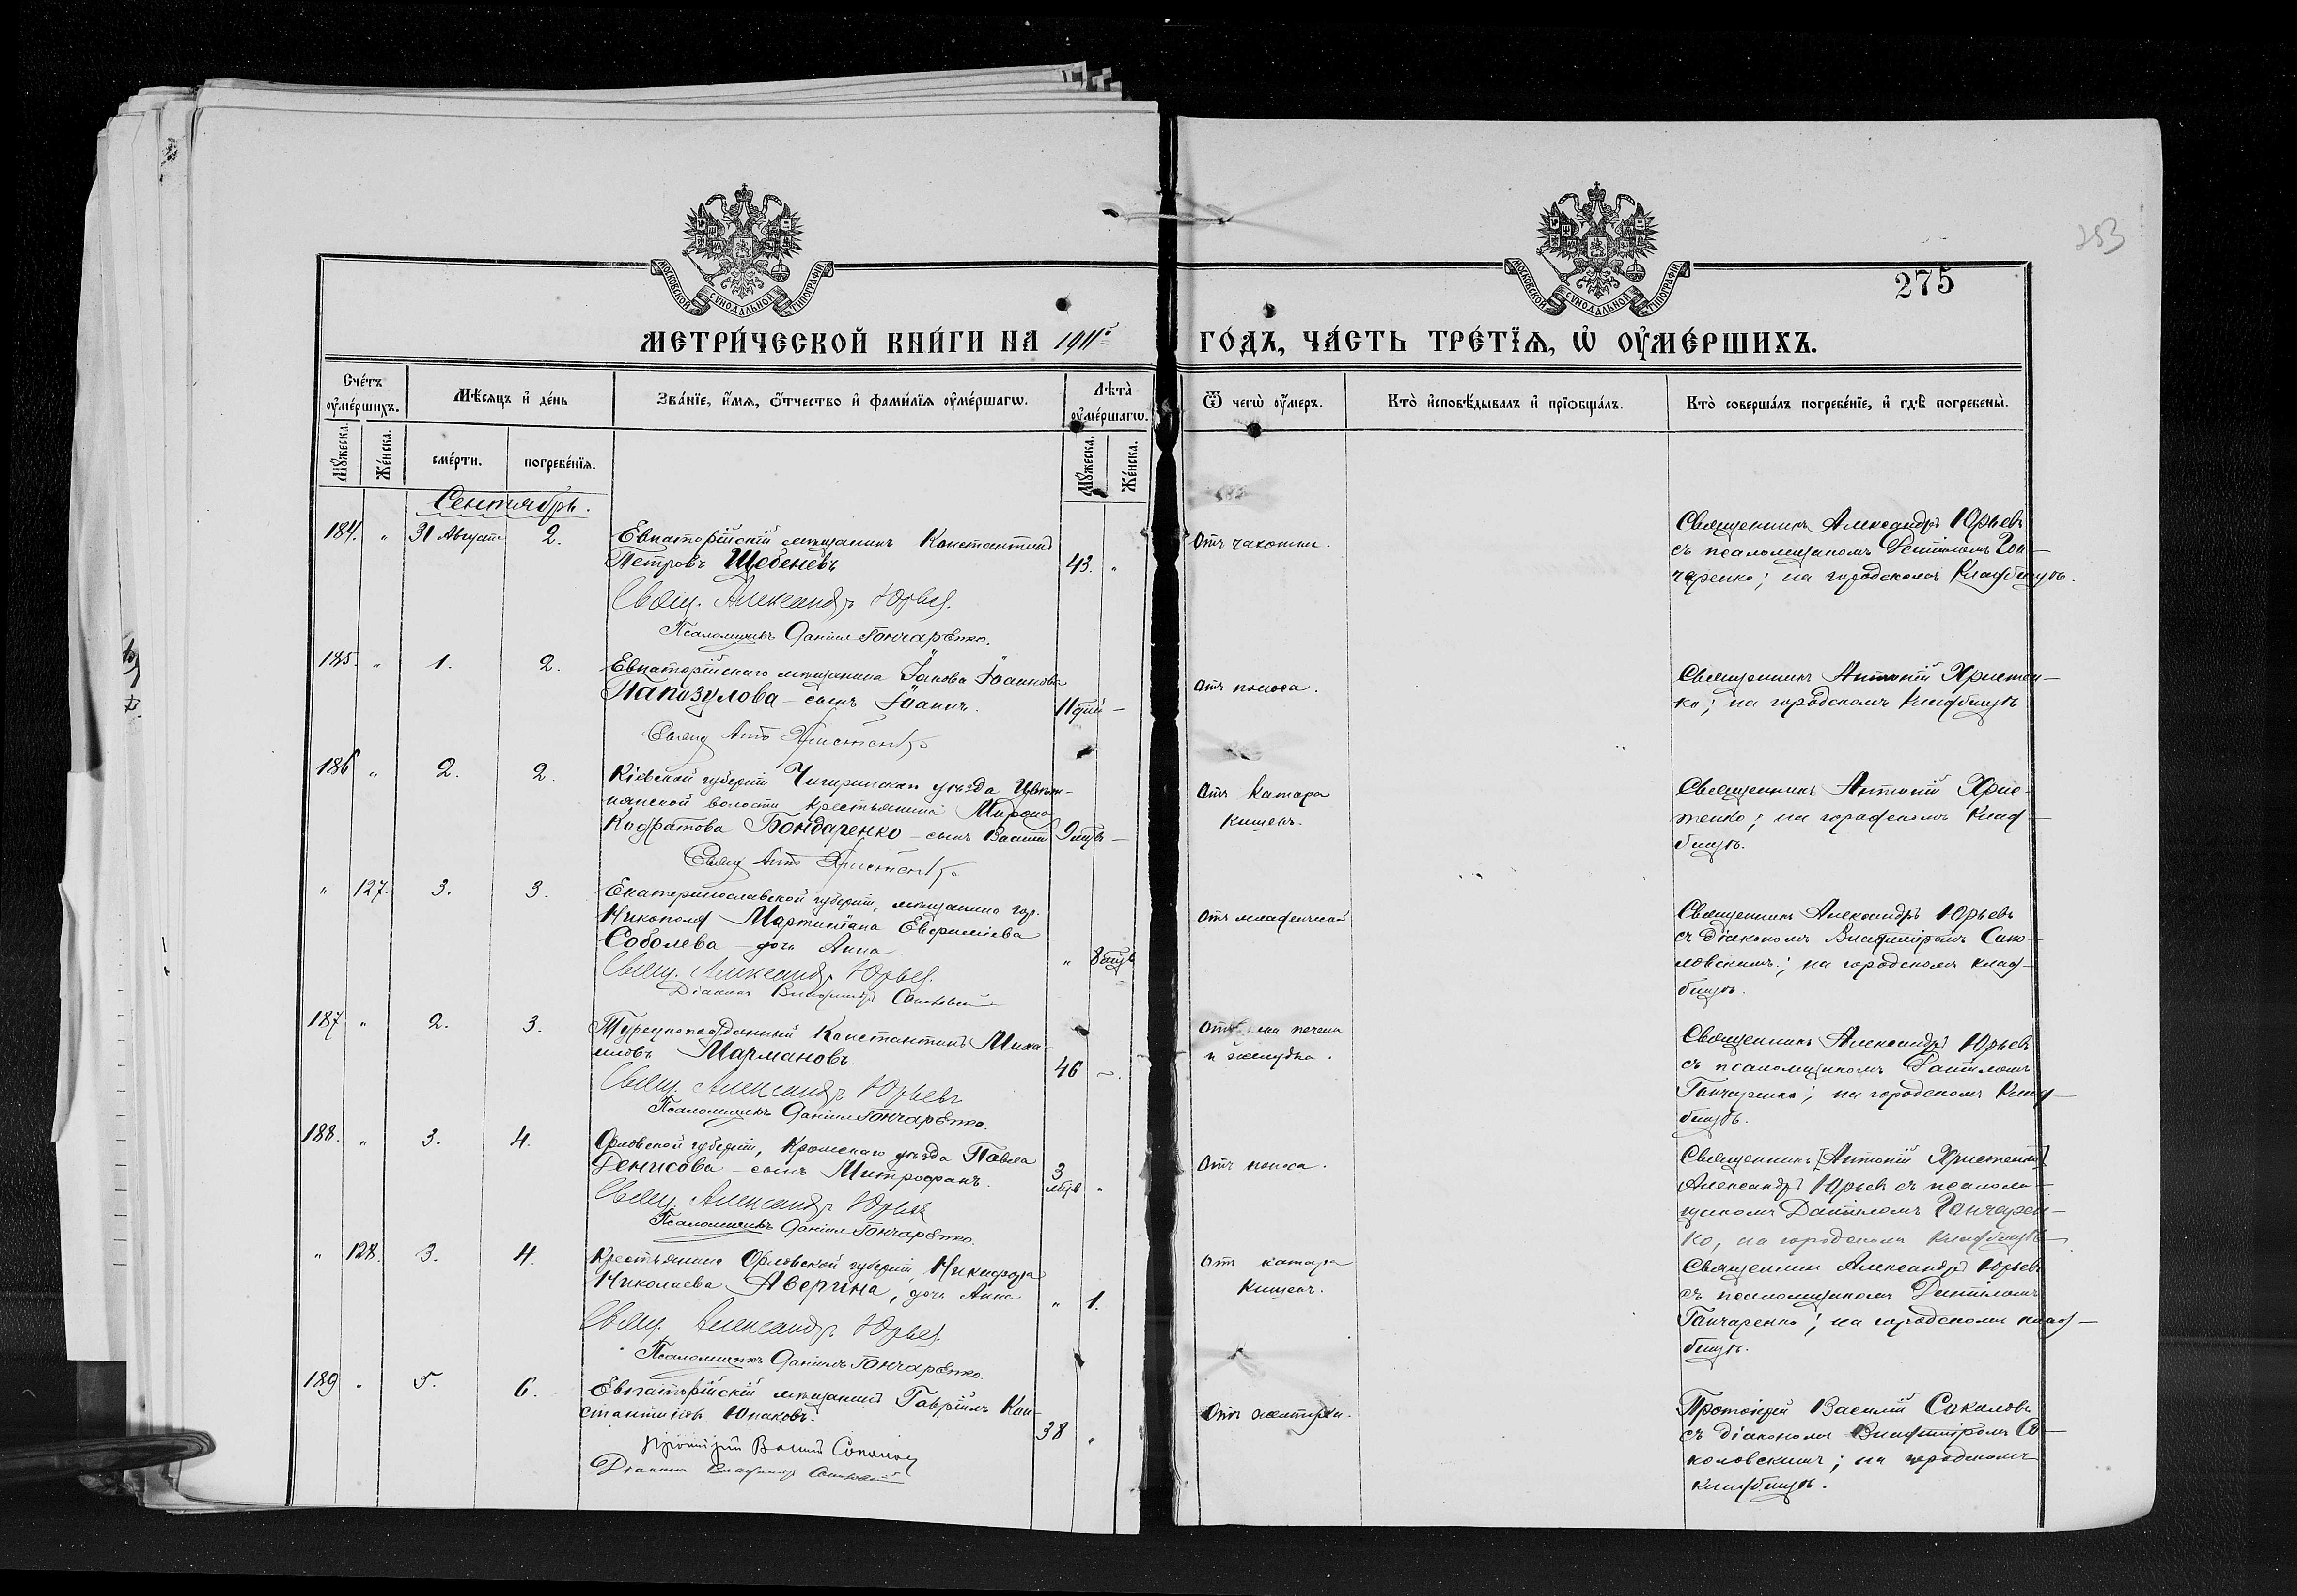 МОСКОВСКОЙ СѴНОДАЛЬНОЙ ТИПОГРАФІИ
МОСКОВСКОЙ СѴНОДАЛЬНОЙ ТИПОГРАФІИ
253
275
МЕТРИ́ЧЕСКОЙ КНИ́ГИ НА 1911й ГО́ДЪ, ЧА́СТЬ ТРЕ́ТЇѦ, Ѡ҆ ОУ҆МЕ́РШИХЪ.
Сче́тъ оу҆ме́ршихъ.
Мѣ́сяцъ и҆ де́нь
Зва́нїе, и҆́мѧ, ѻ҆́тчество и҆ фами́лїѧ оу҆ме́ршагѡ.
Лѣта̀ оу҆ме́ршагѡ.
Ѿ чегѡ̀ оу҆́меръ.
Кто̀ и҆сповѣ́дывалъ и҆ прїѡбща́лъ.
Кто̀ соверша́лъ погребе́нїе, и҆ гдѣ̀ погребены̀.
Мꙋ́жеска.
Же́нска.
сме́рти.
погребе́нїѧ.
Мꙋ́жеска.
Же́нска.
Сентябрь.
184. " 31 Августа 2. Евпаторійскій мѣщанинъ Константинъ
Петровъ Щебеневъ 43. "
Свящ. Александръ Юрьев.
Псаломщикъ Даніил Гончаренко.
Отъ чахотки.
Священникъ Александръ Юрьевъ
съ псаломщикомъ Даніиломъ Гон-
чаренко; на городскомъ кладбищѣ.
185. " 1. 2. Евпаторійскаго мѣщанина Іакова Іоаннова
Папазулова – сынъ Іоаннъ. 11 дней –
Свящ Анто Христенко
Отъ поноса.
Священникъ Антоній Христен-
ко; на городскомъ кладбищѣ
186 " 2. 2. Кіевской губерніи Чигиринскаго уѣзда
волости крестьянина Мирона
Кодратова Бондаренко – сынъ Василій 9 мцѣв –
Свящ Анто Христенко
Отъ катара
кишекъ.
Священникъ Антоній Хрис-
тенко; на городскомъ клад-
бищѣ.
" 127. 3. 3. Екатеринославской губерніи, мѣщанина гор.
Никополя Мартиніана Евфиміева
Соболева – дочь Анна. " 8 мцѣв
Свящ. Александръ Юрьев.
Діаконъ Владиміръ Соколовскій
Отъ младенческой
Священникъ Александръ Юрьевъ
съ діакономъ Владиміромъ Соко-
ловскимъ; на городскомъ клад-
бищѣ.
187 " 2. 3. Турецкоподданный Константинъ Миха-
иловъ Марманов. 46 –.
Свящ Александръ Юрьевъ
Псаломщикъ Даніил Гончаренко.
печени
и желудка.
Священникъ Александръ Юрьевъ
съ псаломщикомъ Даніиломъ
Гончаренко; на городскомъ клад-
бищѣ.
188. " 3. 4. Орловской губерніи, Кромскаго уѣзда Павла
Денисова – сынъ Митрофанъ. 3 мцѣв "
Свящ. Александръ Юрьев
Псаломщикъ Даніил Гончаренко.
Отъ поноса.
Священникъ [Антоній Христенко]
Александръ Юрьевъ съ псалом-
щикомъ Даніиломъ Гончарен-
ко, на городскомъ кладбищѣ
" 128. 3. 4. Крестьянина Орловской губерніи, Никифора
Николаева Аверина, дочь Анна " 1.
Свящ. Александръ Юрьев.
Псаломщикъ Даніилъ Гончаренко.
Отъ катара
кишекъ.
Священникъ Александръ Юрьевъ
съ псаломщикомъ Даніиломъ
Гончаренко; на городскомъ клад-
бищѣ.
189 " 5. 6. Евпаторійскій мѣщанинъ Гавріилъ Кон-
стантиновъ Юнаковъ. 38 "
Протоіерей Василій Соколов
Діаконъ Владиміръ Соколовскій
Протоіерей Василій Соколовъ
съ діакономъ Владиміромъ Со-
коловскимъ; на городскомъ
кладбищѣ.